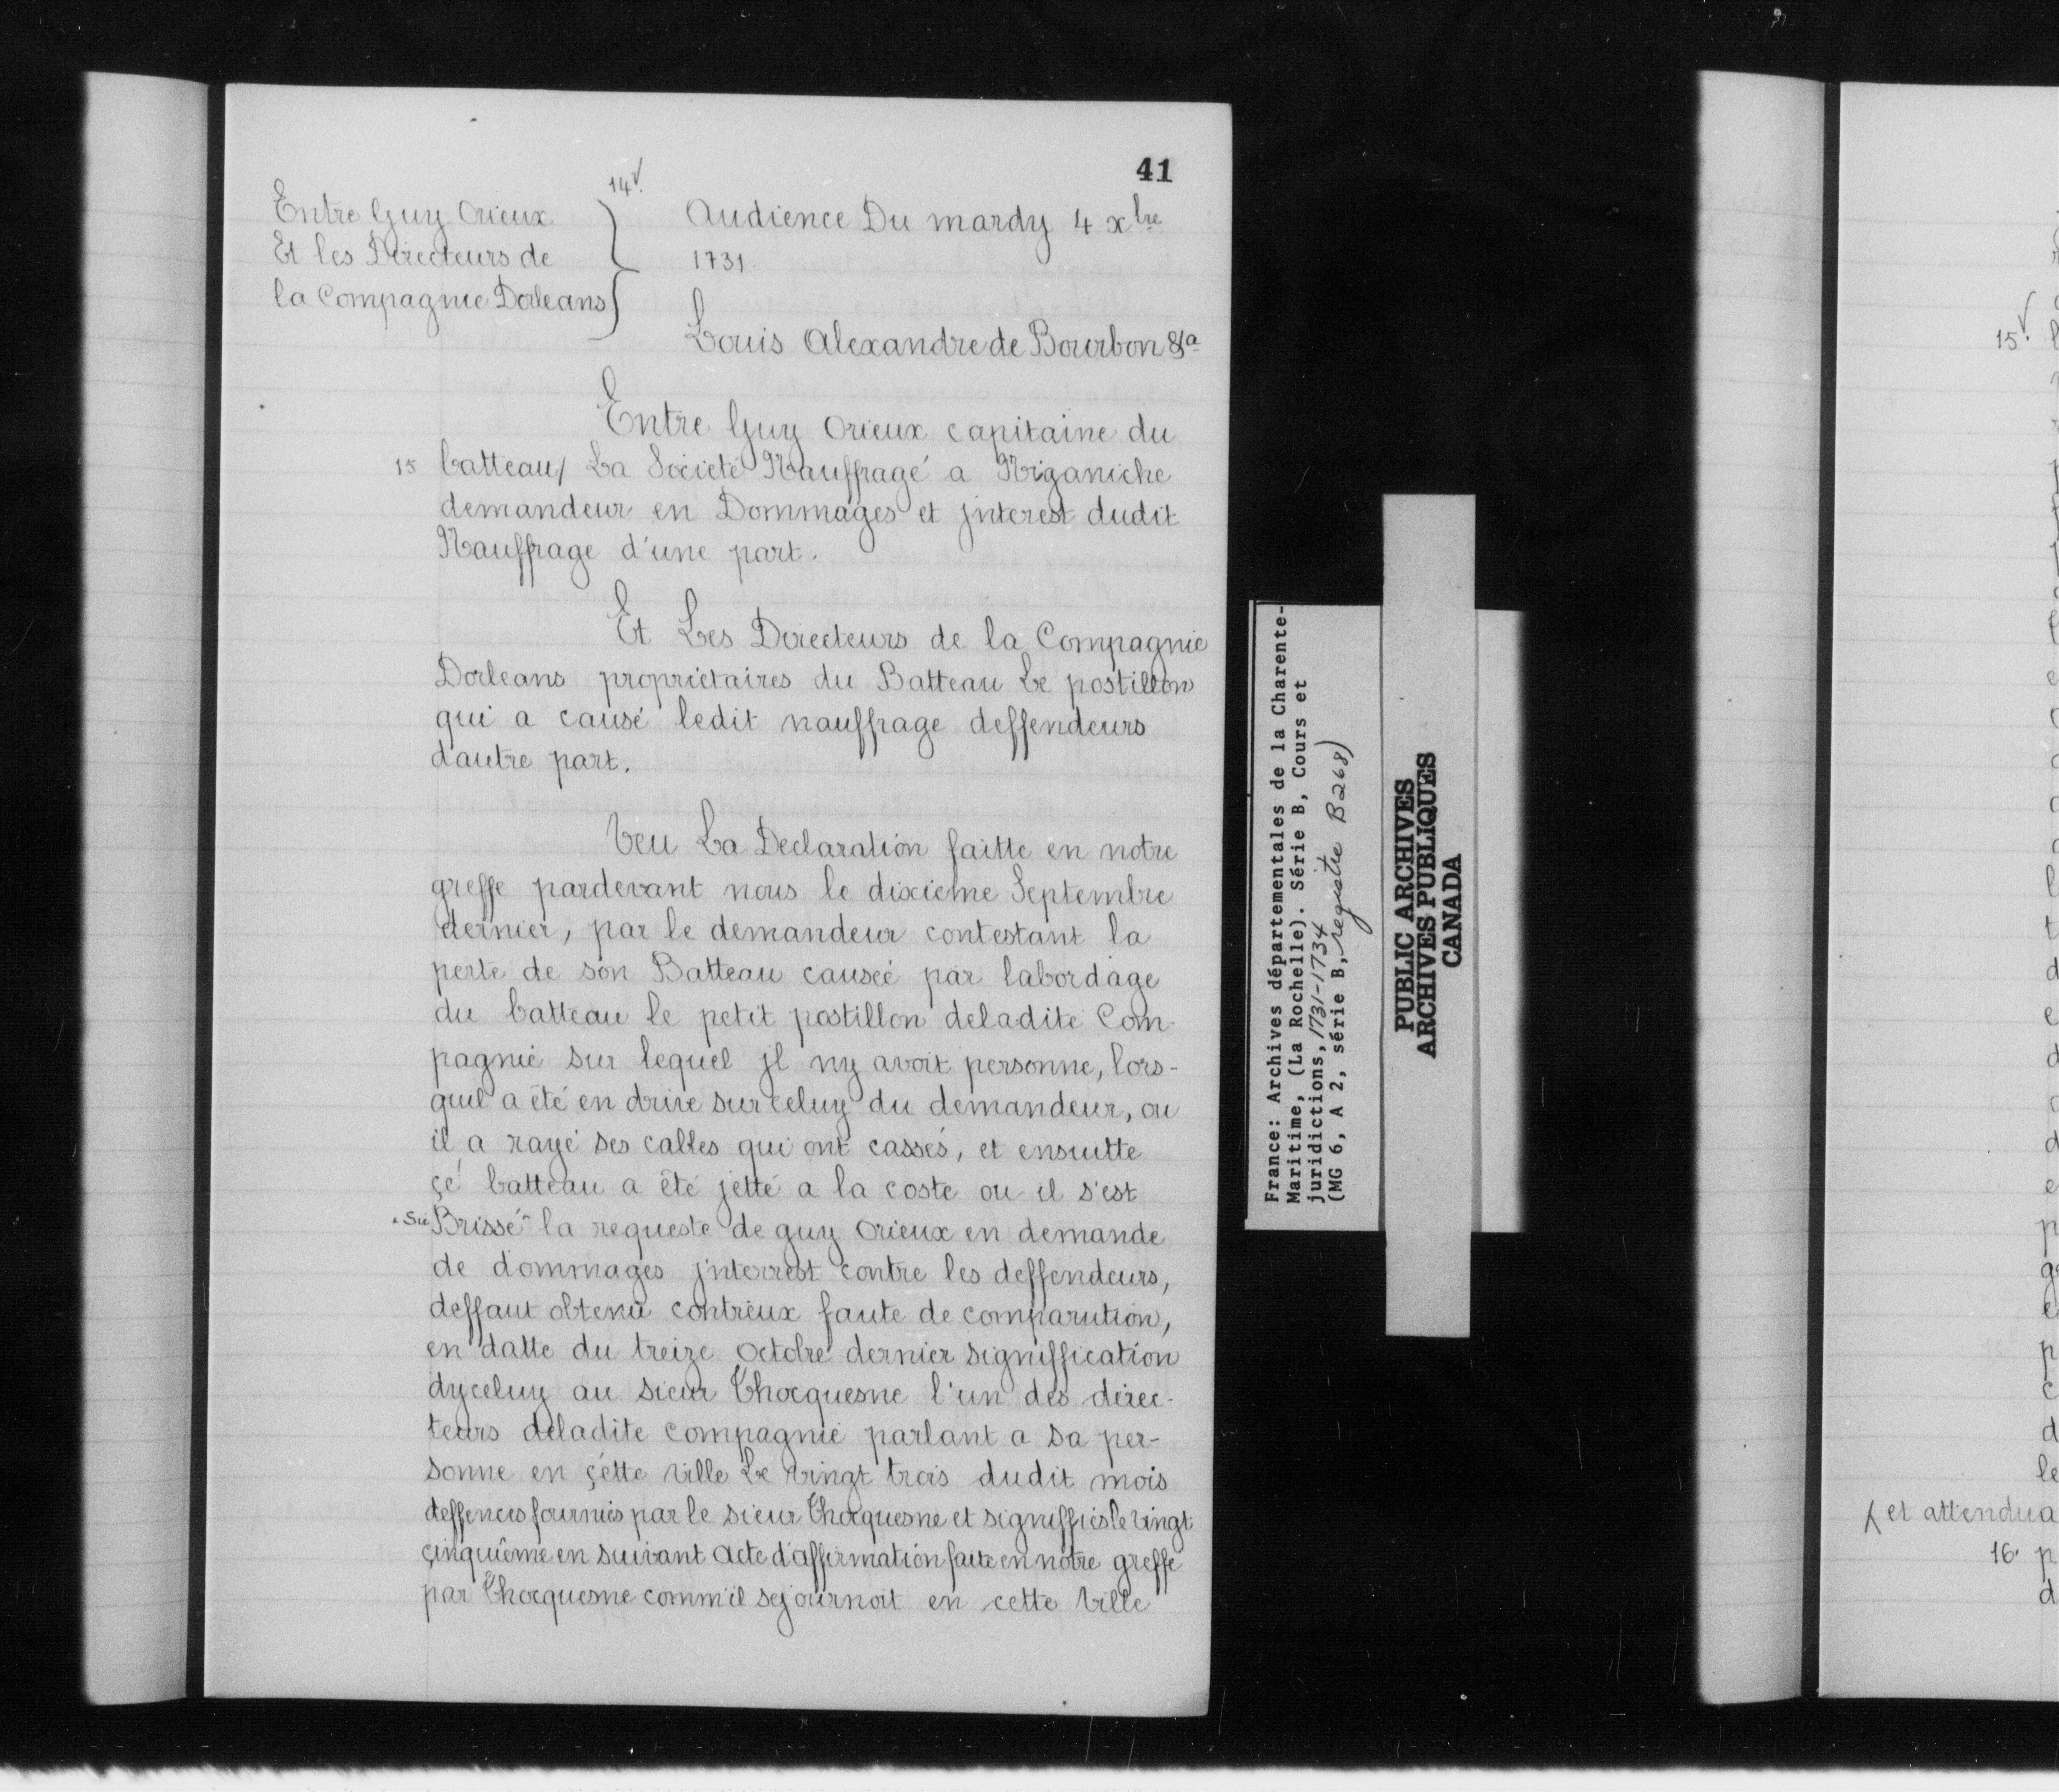 41
14v.
Entre Guy Orieux
Et les Directeurs de
la Compagnie Dorleans
Audience Du mardy 4 xbre
1731.
Louis Alexandre de Bourbon &a
Entre Guy Orieux capitaine du
15 batteau/ La Société Nauffragé a Niganiche
demandeur en Dommages et jnterest dudit
Nauffrage d'une part.
Et Les Directeurs de la Compagnie
Dorleans propriétaires du Batteau Le postillon
qui a causé ledit nauffrage deffendeurs
dautre part.
Veu La Declaration faitte en notre
greffe pardevant nous le dixieme Septembre
dernier, par le demandeur contestant la
perte de son Batteau causée par labordage
du batteau le petit postillon deladite Com-
pagnie sur lequel jl ny avoit personne, lors-
quil a été en drive sur celuy du demandeur, ou
il a rayé ses cables qui ont cassés, et ensuitte
çé batteau a été jetté a la coste ou il s'est
Brissé la requeste de guy Orieux en demande
de dommages jnterrest contre les deffendeurs,
deffaut obtenu contreux faute de comparution,
en datte du treize Octobre dernier signiffication
dyceluy au sieur Thocquesne l'un des direc-
teurs deladite compagnie parlant a sa per-
sonne en çétte ville Le vingt trois dudit mois
deffences fournies par le sieur Thocquesne et signiffiés le vingt
çinquiême en suivant Acte d'affirmation faite en notre greffe
par Thocquesne comm'il sejournoit en cette Ville
France: Archives départementales de la Charente-
Maritime, (La Rochelle). Série B, Cours et
juridictions, 1731-1734
(MG 6, A 2, série B, registre B268)
PUBLIC ARCHIVES
ARCHIVES PUBLIQUES
CANADA
15v.
et attendu a
16.